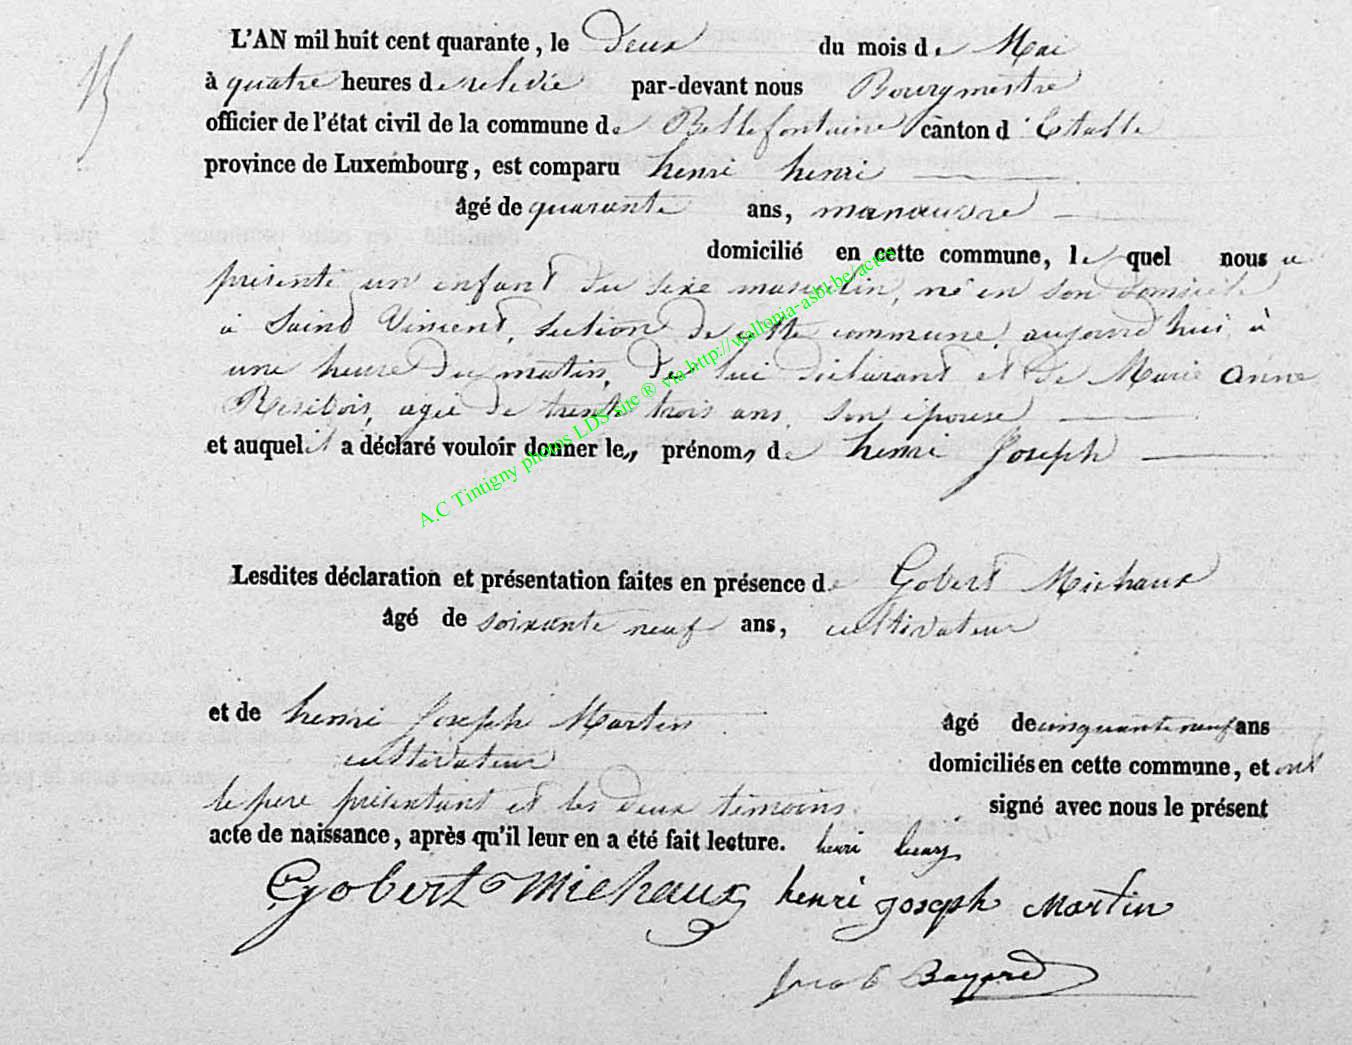 15
L'AN mil huit cent quarante, le Deux du mois de Mai
à quatre heures de relevée par-devant nous Bourgmestre
officier de l'état civil de la commune de Bellefontaine canton d'Etalle
province de Luxembourg, est comparu henri henri
âgé de quarante ans, manœuvre
domicilié en cette commune, lequel nous a
présenté un enfant du sexe masculin, né en son domicile
à Saint Vincent, section de cette commune, aujourd'hui à
une heure du matin, de lui déclarant et de Marie Anne
Resibois, agée de trente trois ans, son épouse
et auquel il a déclaré vouloir donner les prénoms de henri Joseph
Lesdites déclaration et présentation faites en présence de Gobert Michaux
âgé de soixante neuf ans, cultivateur
et de henri Joseph Martin âgé de cinquante neuf ans
cultivateur domiciliés en cette commune, et ont
le père présentant et les deux témoins signé avec nous le présent
acte de naissance, après qu'il leur en a été fait lecture. henri henry
Gobert Michaux henri joseph Martin
Jacob Bayard
A.C Tintigny photos LDS site ® via http://wallonia-asbl.be/actes